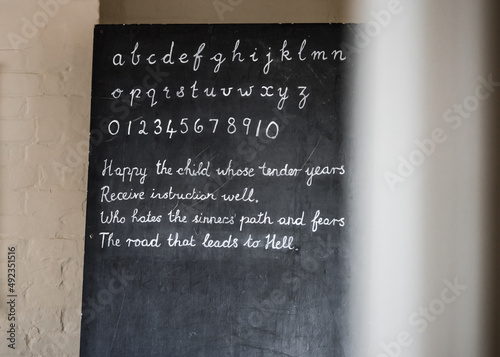 a b c d e f g h i j k l m n
o p q r s t u v w x y z
0 1 2 3 4 5 6 7 8 9 10
Happy the child whose tender years
Receive instruction well.
Who hates the sinners' path and fears
The road that leads to Hell.
Adobe Stock | #492351516